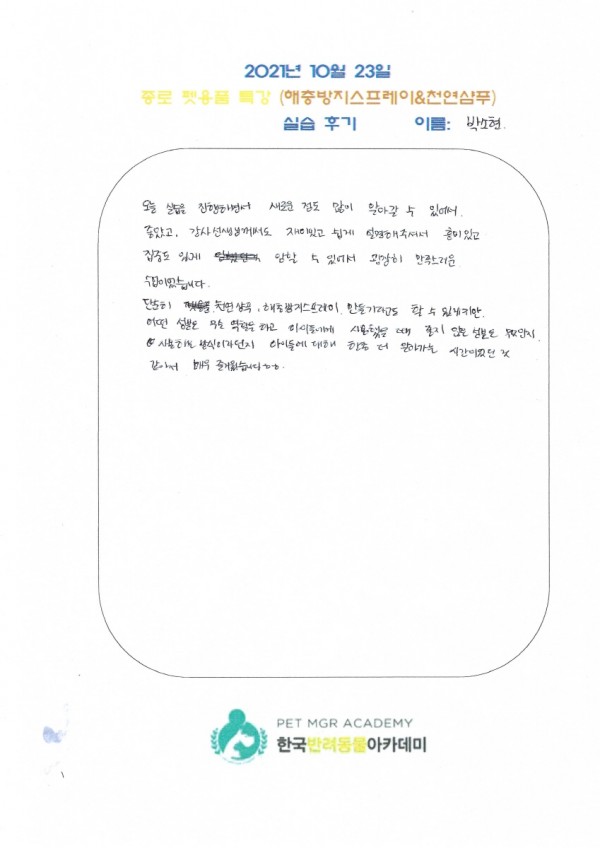 2021년 10월 23일
종로 펫용품 특강 (해충방지스프레이&천연샴푸)
실습 후기 이름: 박소현.
오늘 실습을 진행하면서 새로운 점도 많이 알아갈 수 있어서
좋았고, 강사선생님께서도 재미있고 쉽게 설명해주셔서 흥미있고
집중도 있게 임할 수 있어서 굉장히 만족스러운
수업이었습니다.
단순히 천연샴푸, 해충방지스프레이 만들기라고도 할 수 있겠지만
어떤 성분도 무슨 역할을 하고 아이들에게 사용했을 때 좋지 않은 성분도 무엇인지,
사용하는 방식이라던지 아이들에 대해 한층 더 알아가는 시간이었던 것
같아서 매우 즐거웠습니다ㅎㅎ.
PET MGR ACADEMY
한국반려동물아카데미